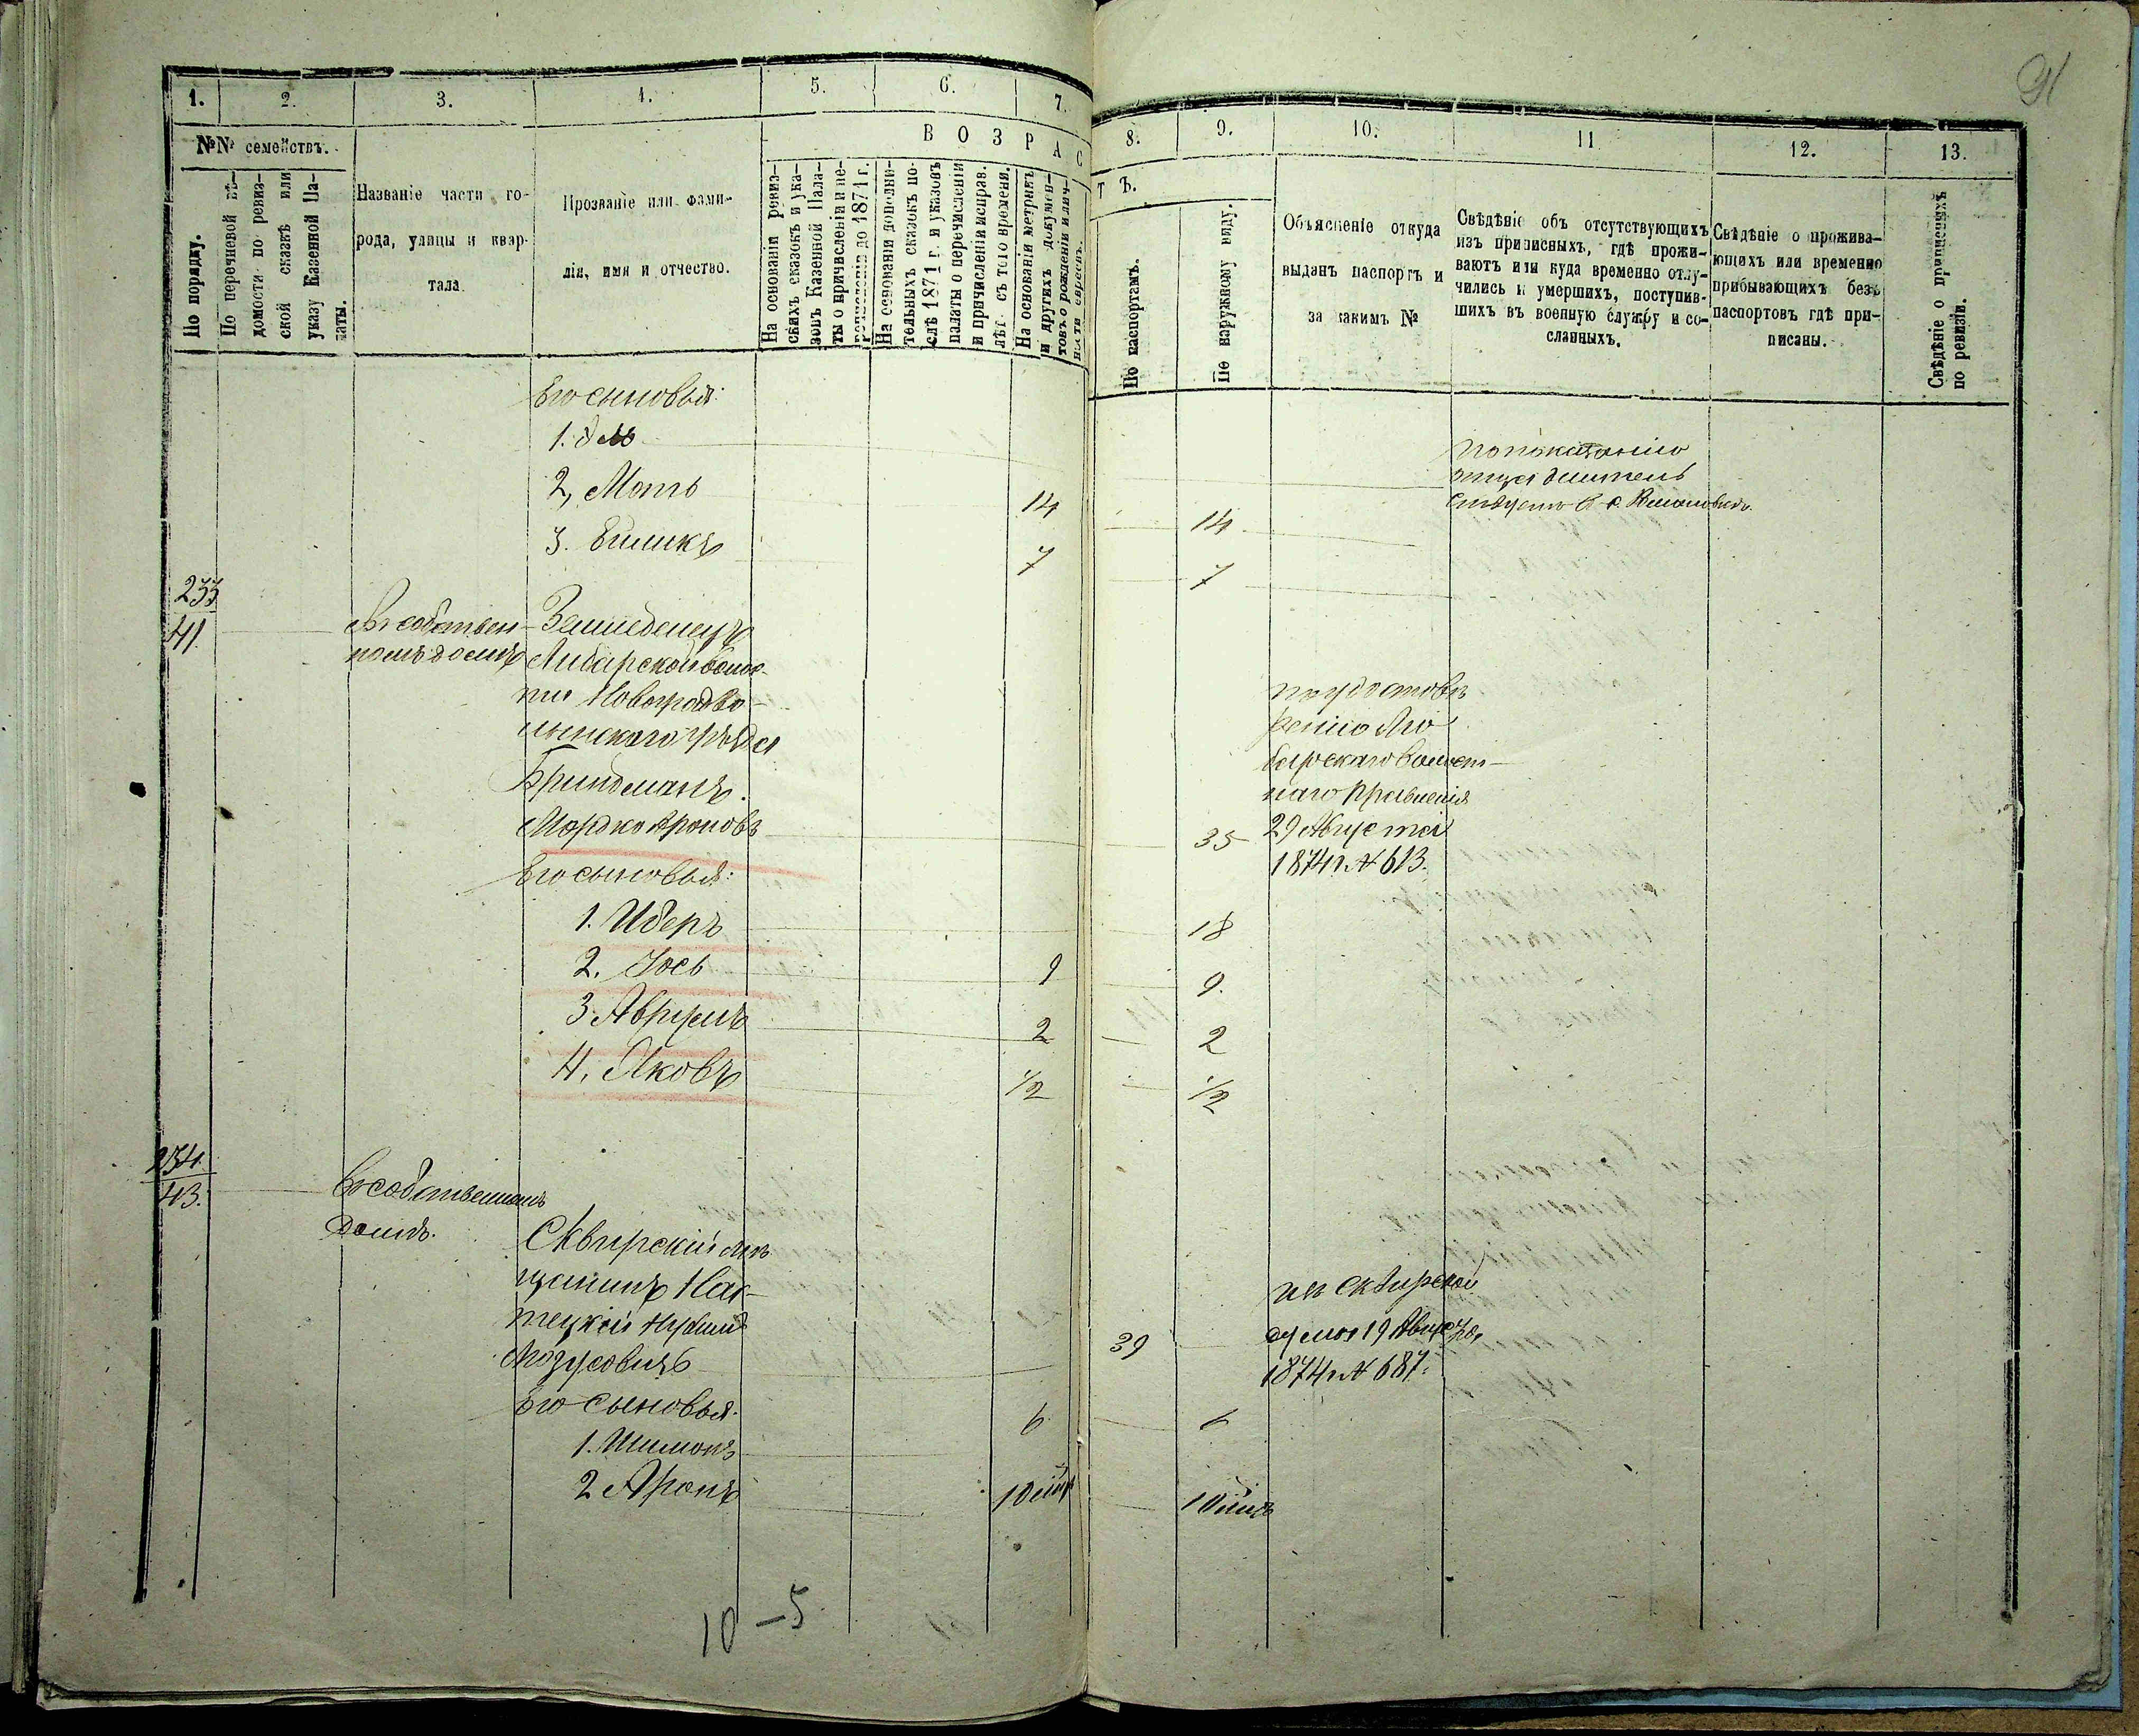 91
1. 2. 3. 4. 5. 6. 7. 8. 9. 10. 11 12. 13.
№№ семействъ.
В О З Р А С Т Ъ.
По порядку.
По перечневой вѣ-
домости по ревиз-
ской сказкѣ или
указу Казенной Па-
латы.
Названіе части го-
рода, улицы и квар-
тала.
Прозваніе или фами-
лія, имя и отчество.
На основаніи ревиз-
скихъ сказокъ и ука-
зовъ Казенной Пала-
ты о причисленіи и пе-
речисленіи до 1871 г.
На основаніи дополни-
тельныхъ сказокъ по-
слѣ 1871 г. и указовъ
палаты о перечисленіи
и причисленіи исправ.
лѣт. съ того времени.
На основаніи метрикъ
и другихъ докумен-
товъ о рожденіи и лич-
ности евреевъ.
По паспортамъ.
По наружному виду.
Объясненіе откуда
выданъ паспортъ и
за какимъ №
Свѣдѣніе объ отсутствующихъ
изъ приписныхъ, гдѣ прожи-
ваютъ или куда временно отлу-
чились и умершихъ, поступив-
шихъ въ военную службу и со-
сланныхъ.
Свѣдѣніе о прожива-
ющихъ или временно
прибывающихъ безъ
паспортовъ гдѣ при-
писаны.
Свѣдѣніе о приписныхъ
по ревизіи.
Его сыновья:
1.
2, Моть 14 14
3. 7 7
по показанію
отца
233
41
Въ собствен-
номъ домѣ
Земледелецъ
Любарской волос-
ти Новоградво-
лынского уѣзда
Бриндманъ.
Мордко Ароновъ 35
по удостовѣ
ренію Лю
барскаго Волост-
наго Правленія
29 Августа
1874 г. № 613.
Его сыновья:
1. Иберъ 18
2. Іось 9 9.
3. Аврумъ 2 2
4. Яковъ 1/2 1/2
234
43.
Въ собственномъ
домѣ.
Сквирскій мѣ
щанинъ
39
изъ Сквирской
думы 19 Августа
1874 г. № 687.
Его сыновья.
1. Шимонъ 6 6
2 Аронъ 10 10
10 – 5